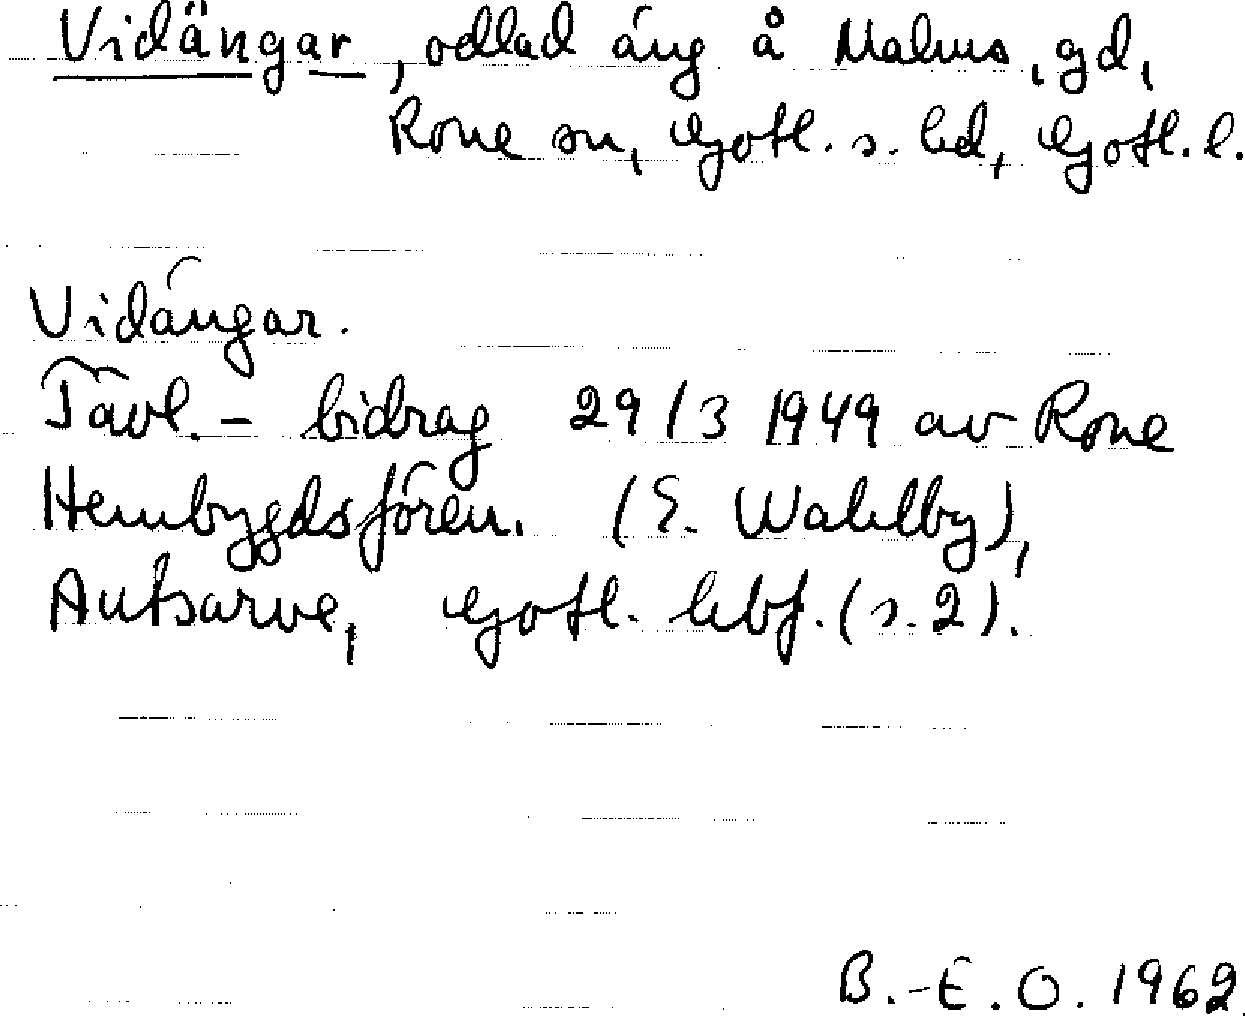 Vidängar, odlad äng å Malms, gd,
Rone sn, Gotl. s. hd, Gotl. l.
Vidängar.
Tävl.- bidrag 29/3 1949 av Rone
Hembygdsfören. (E. Wahlby),
Autsarve, Gotl. hbf. (s. 2).
B.-E. O. 1962.